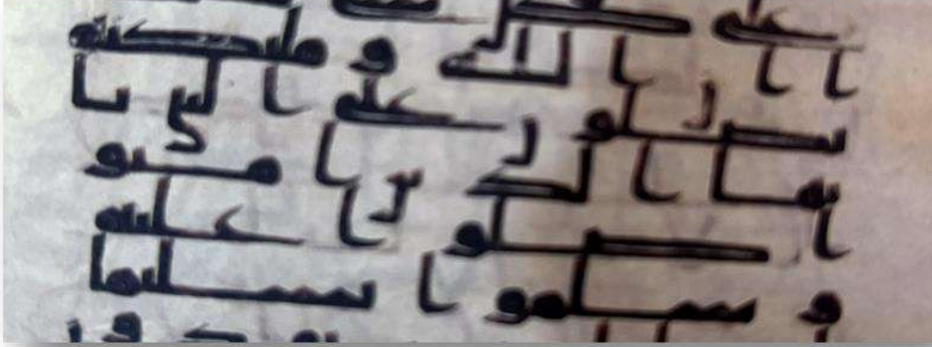 ا ان الله و ملئكته
يصلون على النبى يا
يها الذين امنو
ا صلوا عليه
و سلموا تسليما